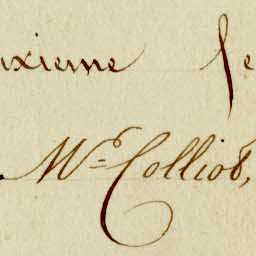 uxieme se
Me Colliot,